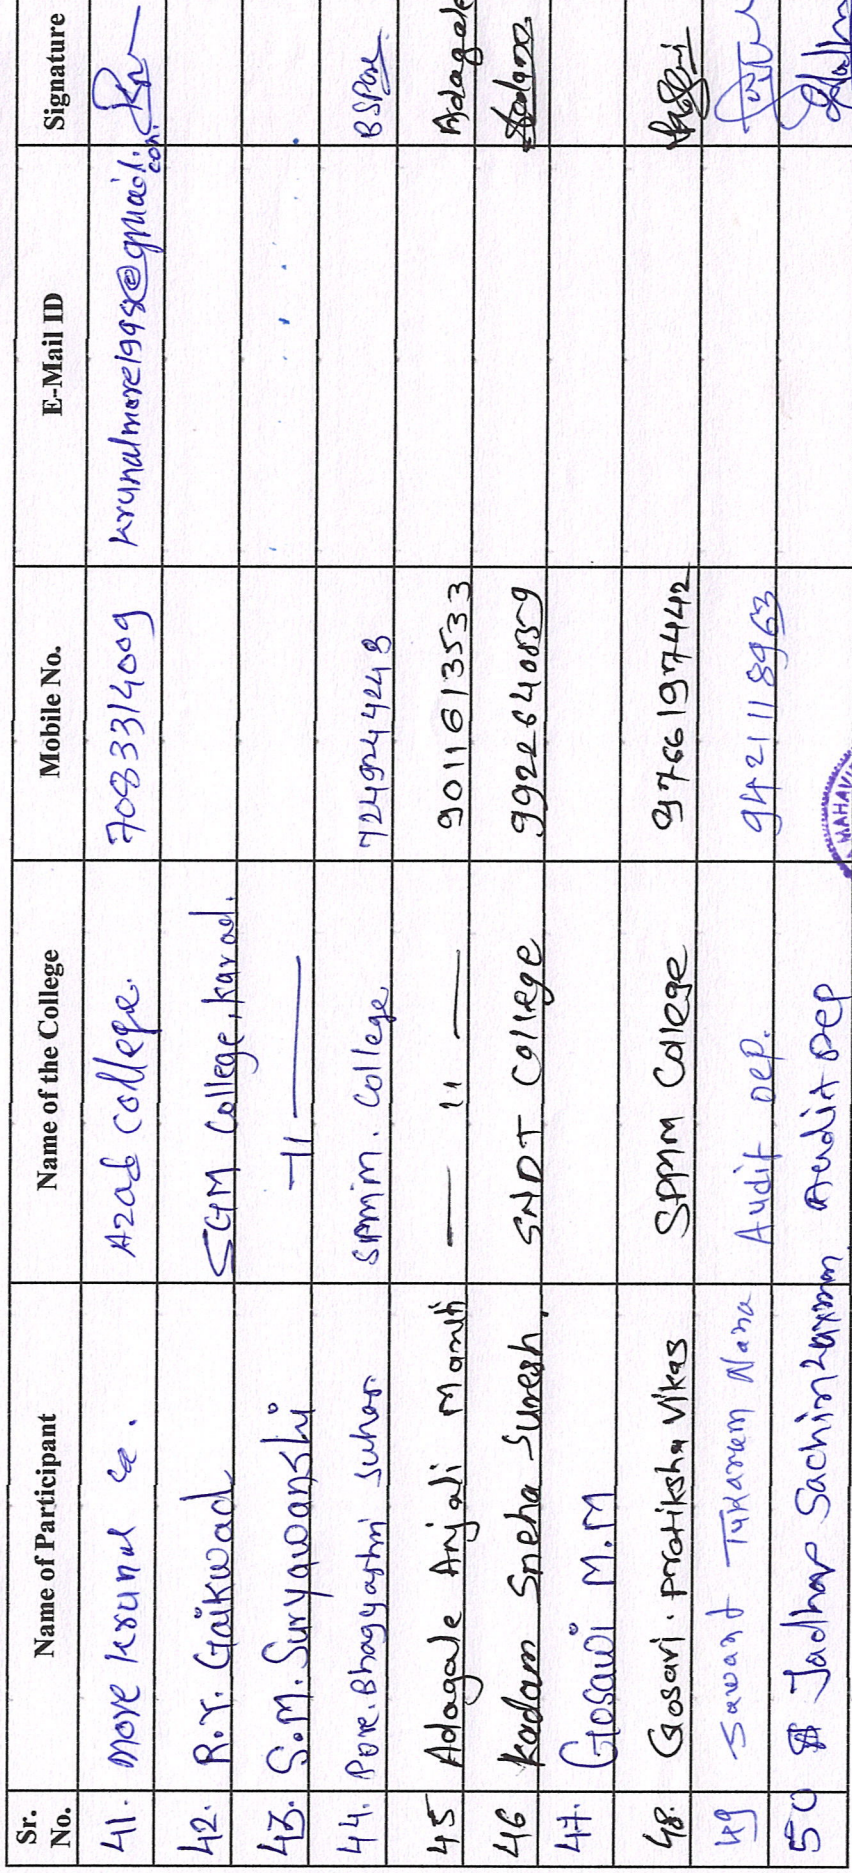 Sr. No. Name of Participant Name of the College Mobile No. E-Mail ID Signature
41. More Krunal Azad College. 7083314009 krunalmore1998@gmail.com
42. R.Y. Gaikwad SGM College, Karad.
43. S.M. Suryawanshi — 11 —
44. Pore. Bhagyashri Suhas College 7249244248 BSPore
45 Adagale Anjali — 11 — 9011613533 Adagale
46 Kadam Sneha Suresh. SNDT College 9922640859
47. Gosawi M.M
48. Gosavi. Pratiksha Vikas SPMM College 9766197442
49 Sawant Tukaram Nana Audit Dep. 9421118963
50 Jadhav Sachin Laxman Audit Dep
MAHAVI